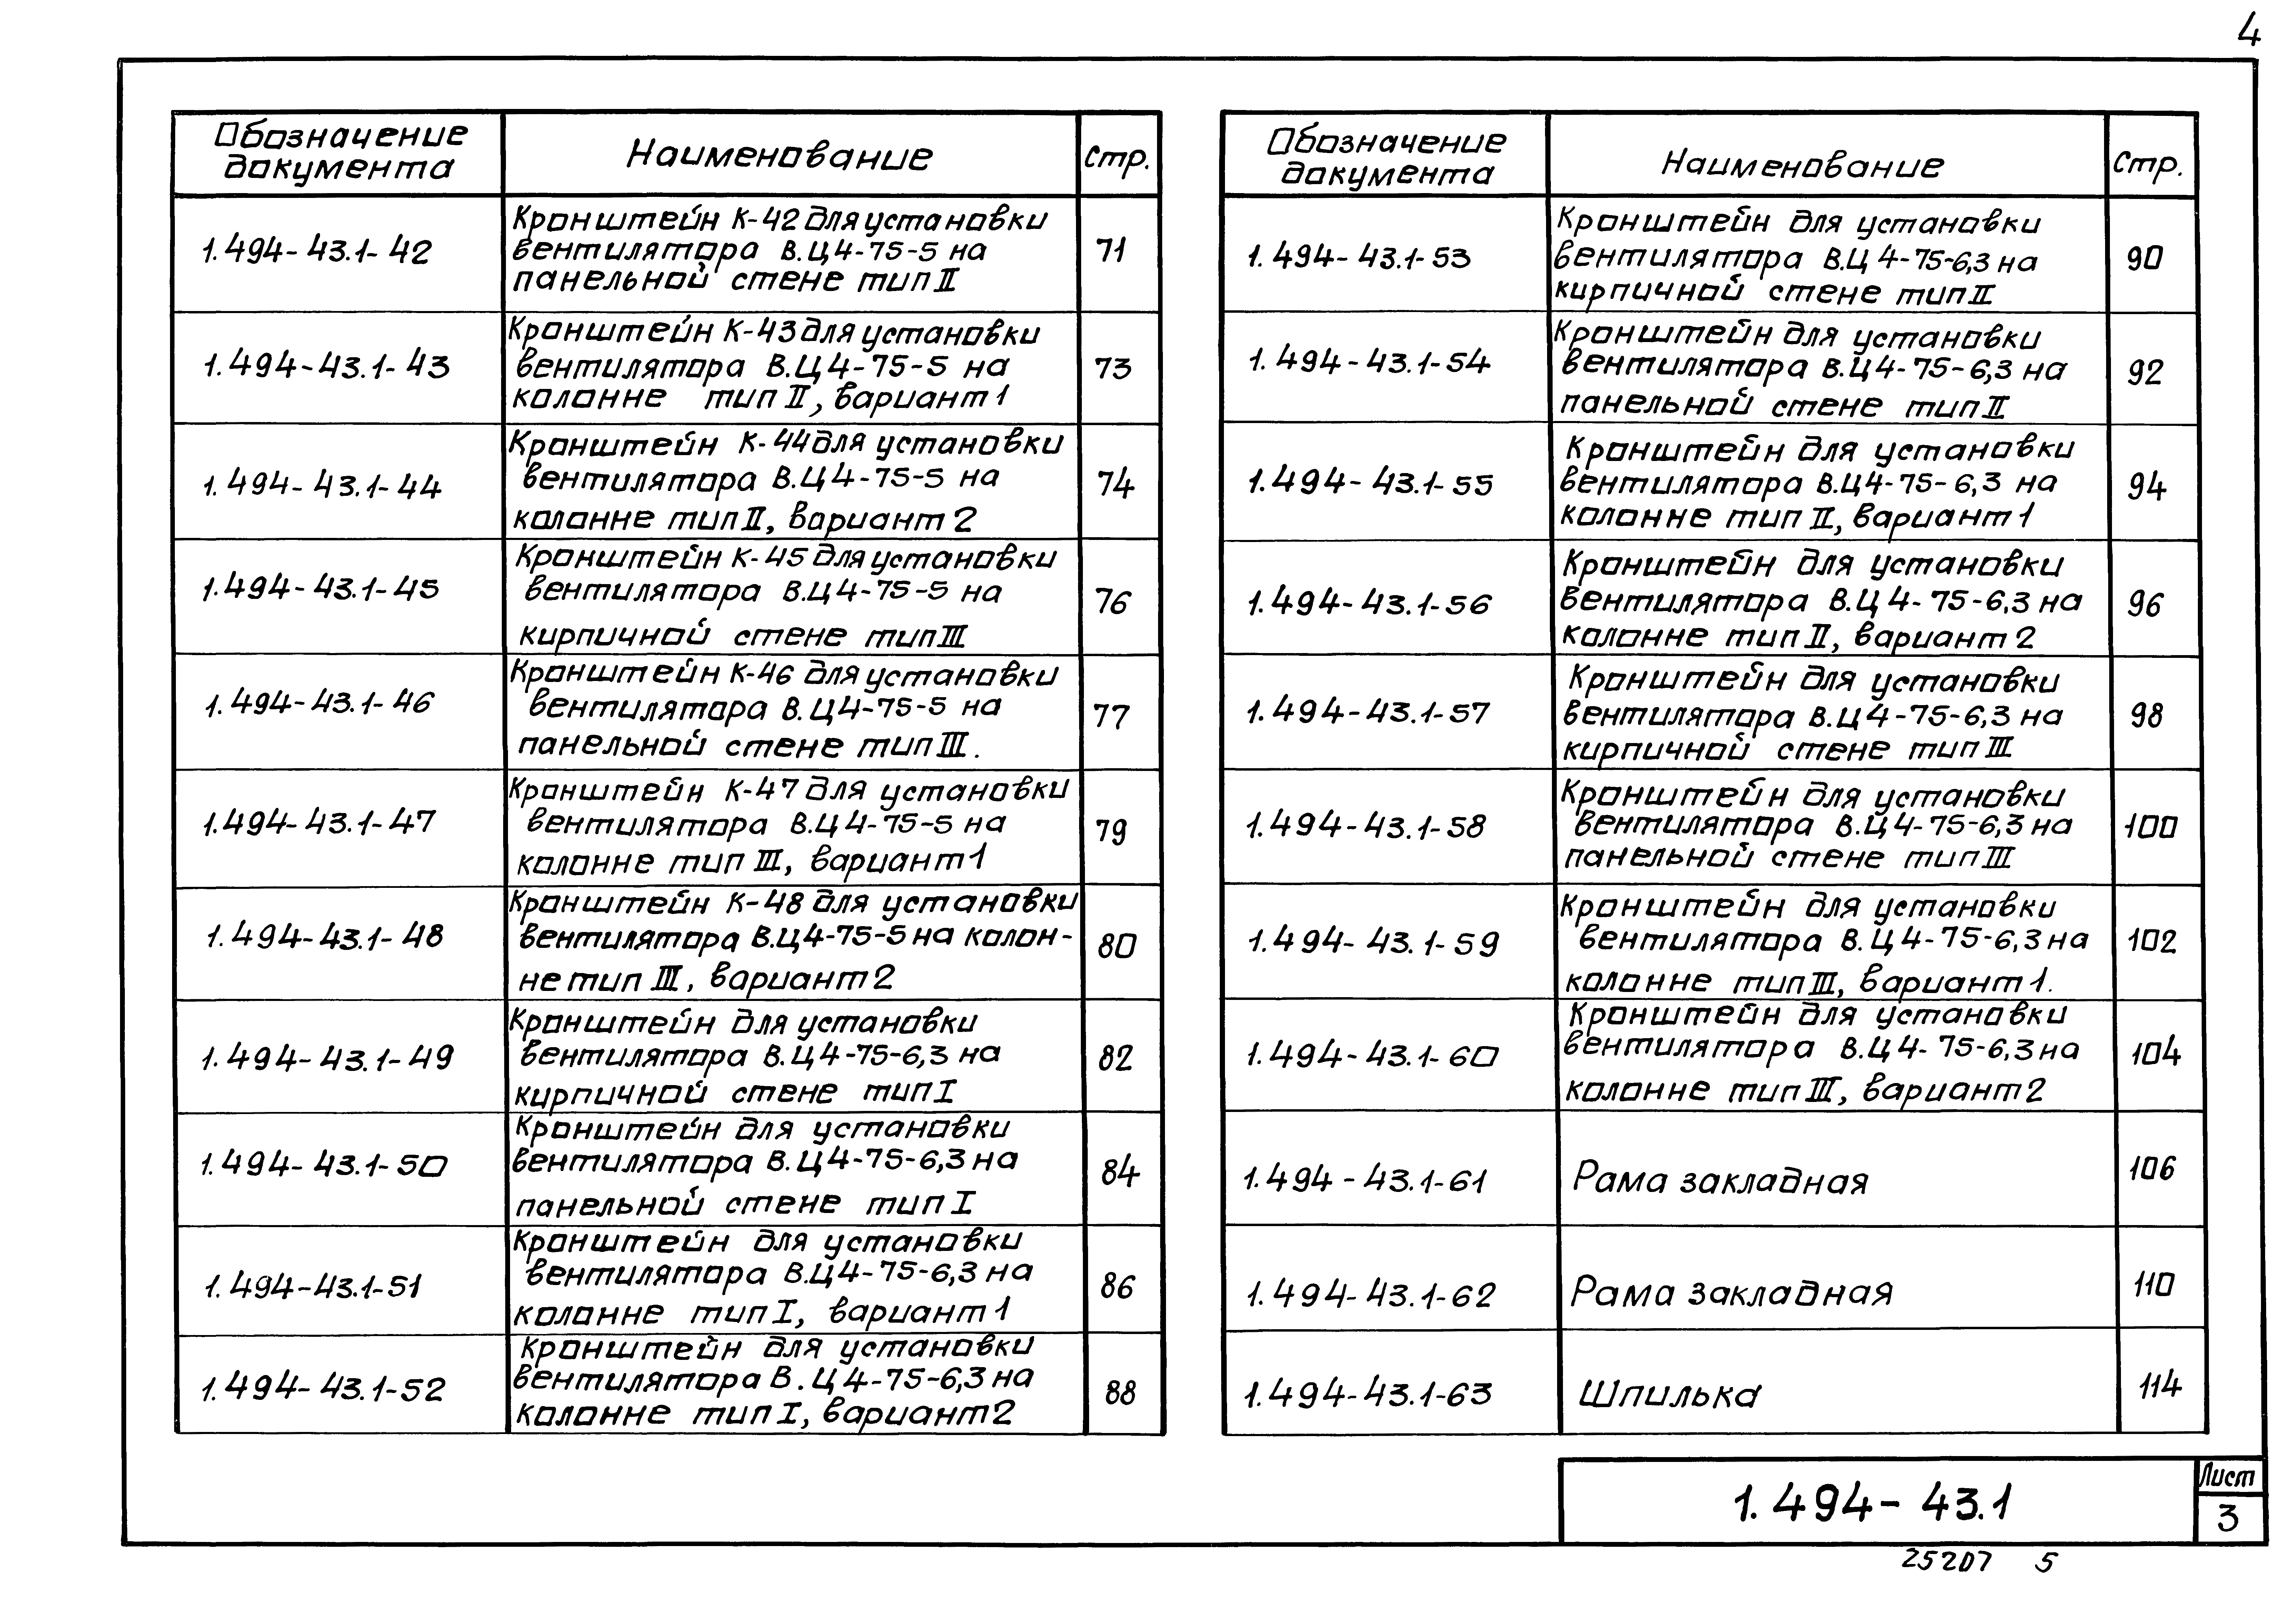 4
Обозначение
документа
Наименование
Стр.
1.494-43.1-42
Кронштейн К-42 для установки
вентилятора В.Ц4-75-5 на
панельной стене тип II
71
1.494-43.1-43
Кронштейн К-43 для установки
вентилятора В.Ц4-75-5 на
колонне тип II, вариант 1
73
1.494-43.1-44
Кронштейн К-44 для установки
вентилятора В.Ц4-75-5 на
колонне тип II, вариант 2
74
1.494-43.1-45
Кронштейн К-45 для установки
вентилятора В.Ц4-75-5 на
кирпичной стене тип III
76
1.494-43.1-46
Кронштейн К-46 для установки
вентилятора В.Ц4-75-5 на
панельной стене тип III.
77
1.494-43.1-47
Кронштейн К-47 для установки
вентилятора В.Ц4-75-5 на
колонне тип III, вариант 1
79
1.494-43.1-48
Кронштейн К-48 для установки
вентилятора В.Ц4-75-5 на колон-
не тип III, вариант 2
80
1.494-43.1-49
Кронштейн для установки
вентилятора В.Ц4-75-6,3 на
кирпичной стене тип I
82
1.494-43.1-50
Кронштейн для установки
вентилятора В.Ц4-75-6,3 на
панельной стене тип I
84
1.494-43.1-51
Кронштейн для установки
вентилятора В.Ц4-75-6,3 на
колонне тип I, вариант 1
86
1.494-43.1-52
Кронштейн для установки
вентилятора В.Ц4-75-6,3 на
колонне тип I, вариант 2
88
Обозначение
документа
Наименование
Стр.
1.494-43.1-53
Кронштейн для установки
вентилятора В.Ц4-75-6,3 на
кирпичной стене тип II
90
1.494-43.1-54
Кронштейн для установки
вентилятора В.Ц4-75-6,3 на
панельной стене тип II
92
1.494-43.1-55
Кронштейн для установки
вентилятора В.Ц4-75-6,3 на
колонне тип II, вариант 1
94
1.494-43.1-56
Кронштейн для установки
вентилятора В.Ц4-75-6,3 на
колонне тип II, вариант 2
96
1.494-43.1-57
Кронштейн для установки
вентилятора В.Ц4-75-6,3 на
кирпичной стене тип III
98
1.494-43.1-58
Кронштейн для установки
вентилятора В.Ц4-75-6,3 на
панельной стене тип III
100
1.494-43.1-59
Кронштейн для установки
вентилятора В.Ц4-75-6,3 на
колонне тип III, вариант 1.
102
1.494-43.1-60
Кронштейн для установки
вентилятора В.Ц4-75-6,3 на
колонне тип III, вариант 2
104
1.494-43.1-61
Рама закладная
106
1.494-43.1-62
Рама закладная
110
1.494-43.1-63
Шпилька
114
1.494-43.1
Лист
3
25207 5